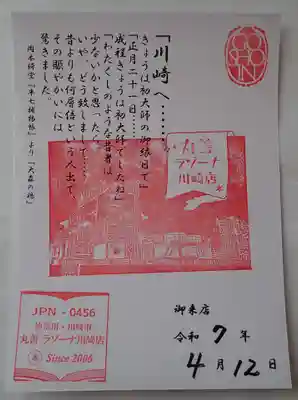 「川崎へ………」
きょうは初大師の御縁日で」
「正月二十一日………。
成程きょうは初大師でしたね」
「わたくしのような昔者は
少ないかと思ったら、
いや、どう致しまして………。
昔よりも何層倍という人出で、
その賑やかいには
驚きました。
岡本綺堂『半七捕物帳』より「大森の鶏」
GO
SHO
IN
丸善
ラゾーナ
川崎店
JPN - 0456
神奈川・川崎市
丸善 ラゾーナ川崎店
Since 2006
御来店
令和 7 年
4 月 12 日